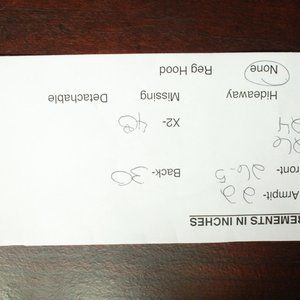 REMENTS IN INCHES
Armpit- 22
ront- 26.5 Back- 30
26
24 X2- 48
Hideaway Missing Detachable
None Reg Hood